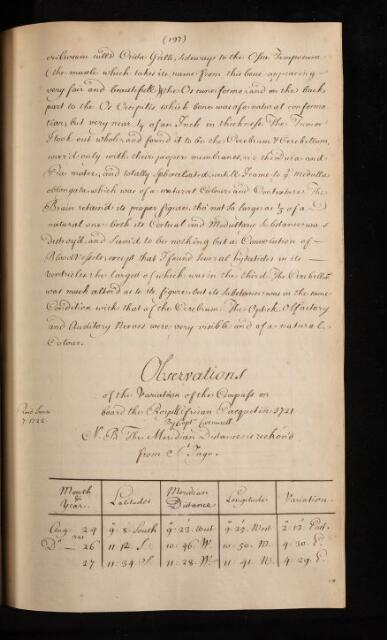 (197)
cribrosum call'd Crista Galli, sideways to the Ossa Temporum
(the muscle which takes its name from this bone appearing
very fair and beautifull) to the Os cuneiforme and on the back
part to the Os Occipitis, which bone was of a natural conforma
tion, but very near ¼ of an Inch in thickness. The Tumor
I took out whole, and found it to be the Cerebrum & Cerebellum,
cover'd only with their proper membranes, viz the dura and
Pia mater, and totally Sphacellated, untill I came to yᵉ medulla
oblongata which was of a natural Colour and Contexture. The
Brain retain'd its proper figure, tho' not so large as ⅓ of a
natural one both its Cortical and Medullary substance was
destroy'd, and seem'd to be nothing but a Convolution of
Blood Vessels, except that I found several hydatides in its
ventricles the largest of which was in the third. The Cerebellũ
was much alter'd as to its figure, but its substance was in the same
Condition with that of the Cerebrum. The Optick, Olfactory
and Auditory Nerves were very visible and of a natural
Colour.
Observations
of the Variation of the Compass on
board the Royal African Pacquet in 1721
By Capt Cornwall
Read June
7. 1722.
N. B. The Meridian Distance is reckon'd
from Sᵗ Iago.
Month & Year. Latitudes Meridian Distance Longitude Variation
Aug: 24 9: 8 South 9: 23 West 9: 24 West 2: 13 East.
Dᵒ 26 11: 12 S. 10: 46 W. 10: 50 W. 4: 30 E.
27 11: 34 S. 11: 28 W. 11: 41 W. 4: 29 E.